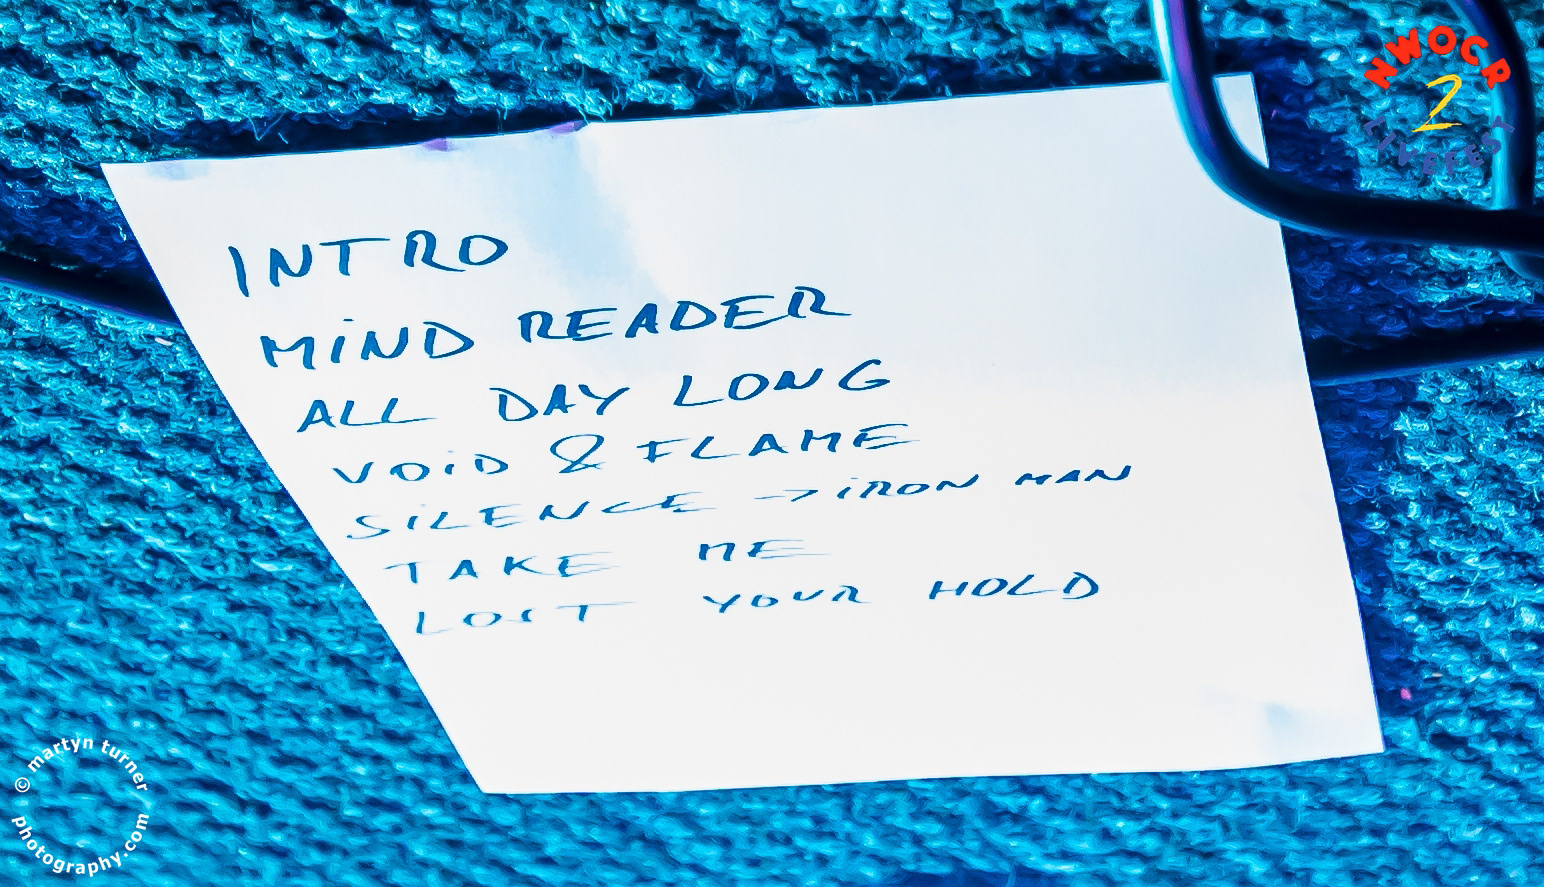 NWOCR
2
LIVEFEST
INTRO
MiND READER
ALL DAY LONG
VOiD & FLAME
SiLENCE -> iRON MAN
TAKE ME
LOST YOUR HOLD
© martyn turner
photography.com